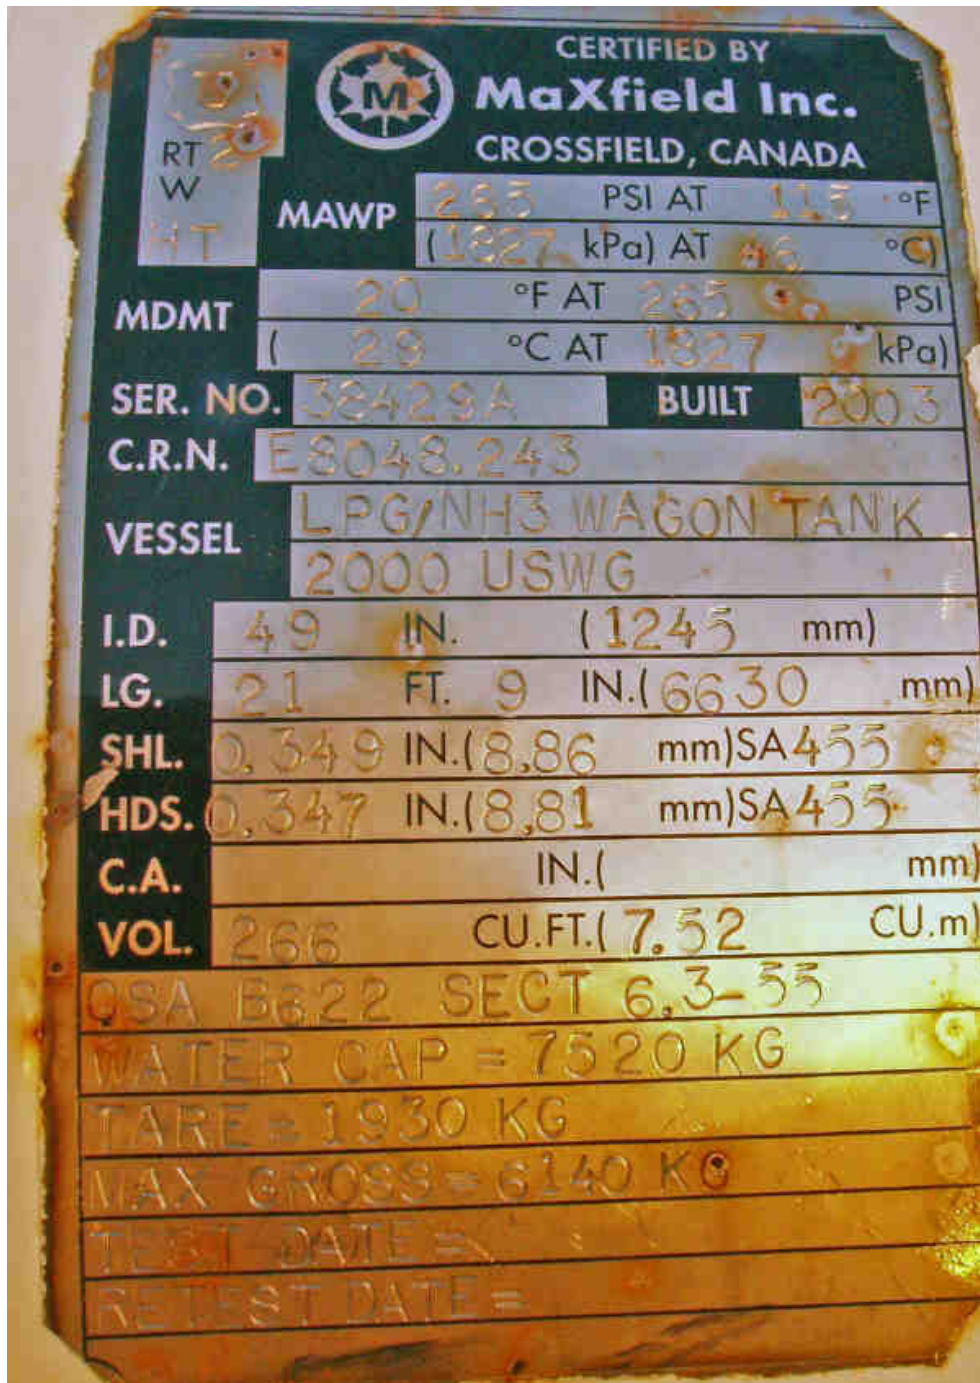 CERTIFIED BY
M
MaXfield Inc.
CROSSFIELD, CANADA
U
RT
W
HT
MAWP 265 PSI AT 115 °F
(1827 kPa) AT 46 °C)
MDMT 20 °F AT 265 PSI
( 29 °C AT 1827 kPa)
SER. NO. 38429A BUILT 2003
C.R.N. E8048.243
VESSEL LPG/NH3 WAGON TANK
2000 USWG
I.D. 49 IN. (1245 mm)
LG. 21 FT. 9 IN.(6630 mm)
SHL. 0.349 IN.(8,86 mm)SA455
HDS. 0.347 IN.(8,81 mm)SA455
C.A. IN.( mm)
VOL. 266 CU.FT.(7.52 CU.m)
CSA B622 SECT 6,3-55
WATER CAP = 7520 KG
TARE = 1930 KG
MAX GROSS = 6140 KG
TEST DATE =
RETEST DATE =